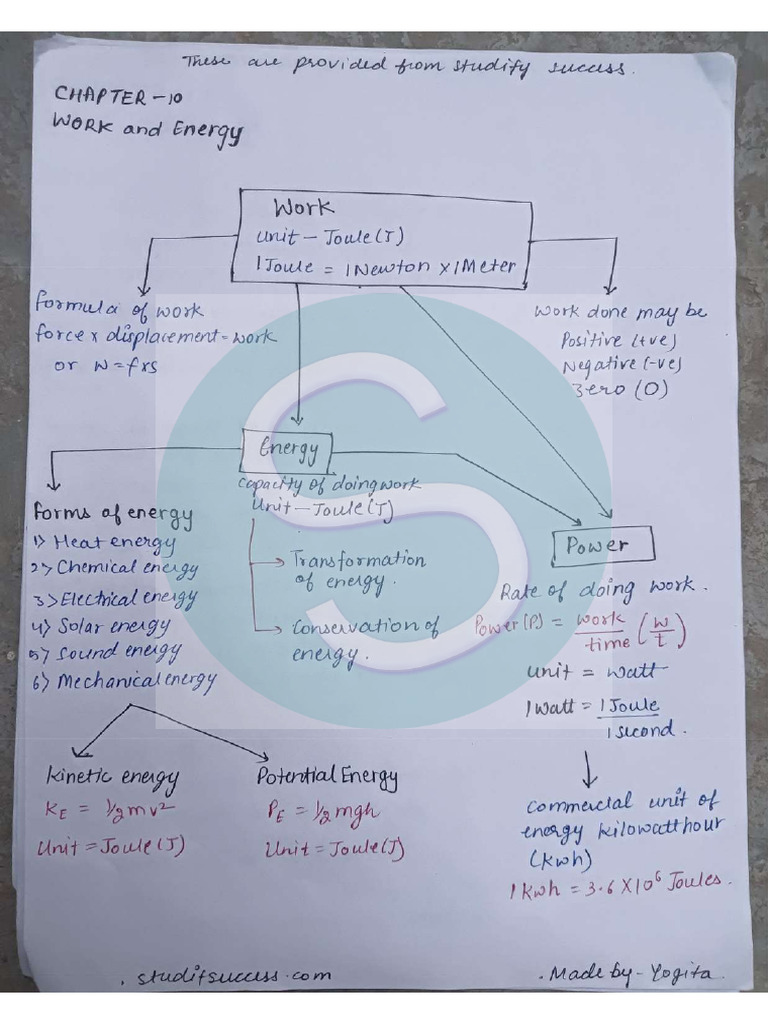 These are provided from studify success.
CHAPTER-10
WORK and Energy
Work
Unit - Joule(J)
1 Joule = 1 Newton x 1 Meter
Formula of work
force x displacement = work
or W = fxs
Work done may be
Positive (+ve)
Negative (-ve)
Zero (0)
Energy
capacity of doing work
Unit - Joule(J)
Transformation
of energy.
Conservation of
energy.
Forms of energy
1> Heat energy
2> Chemical energy
3> Electrical energy
4> Solar energy
5> Sound energy
6> Mechanical energy
Power
Rate of doing work.
Power(P) = work/time (w/t)
unit = watt
1 watt = 1 Joule/1 second.
Commercial unit of
energy kilowatt hour
(kwh)
1 kwh = 3.6 X 10⁶ Joules.
Kinetic energy
KE = 1/2 mv²
Unit = Joule(J)
Potential Energy
PE = 1/2 mgh
Unit = Joule(J)
. studifsuccess.com
. Made by - Yogita